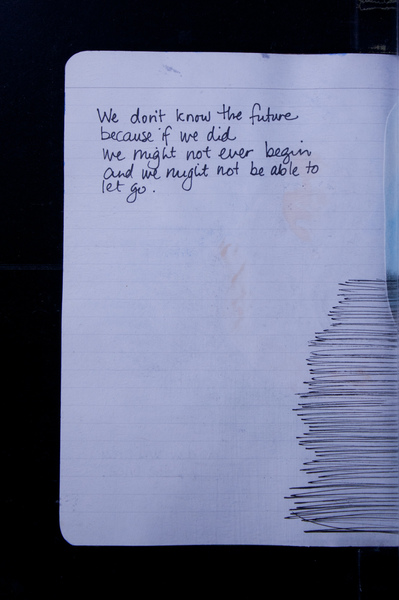 We don't know the future
because if we did
we might not ever begin
and we might not be able to
let go.